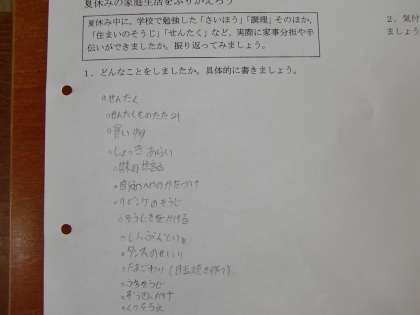 夏休みの家庭生活をふりかえろう
夏休み中に、学校で勉強した「さいほう」「調理」そのほか、
「住まいのそうじ」「せんたく」など、実際に家事分担や手
伝いができましたか。振り返ってみましょう。
1．どんなことをしましたか。具体的に書きましょう。
○せんたく
○せんたくものたたみ
○買い物
○しょっきあらい
○自分のへやのかたづけ
○リビングのそうじ
○そうじきをかける
○しんぶんとり
○タンスのせいり
2．気付
ましょう